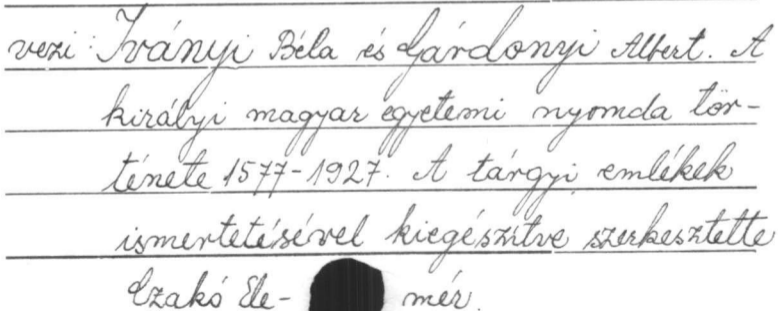 vezi: Iványi Béla és Gárdonyi Albert. A
királyi magyar egyetemi nyomda tör-
ténete 1577-1927. A tárgyi emlékek
ismertetésével kiegészítve szerkesztette
Czakó Ele- mér.